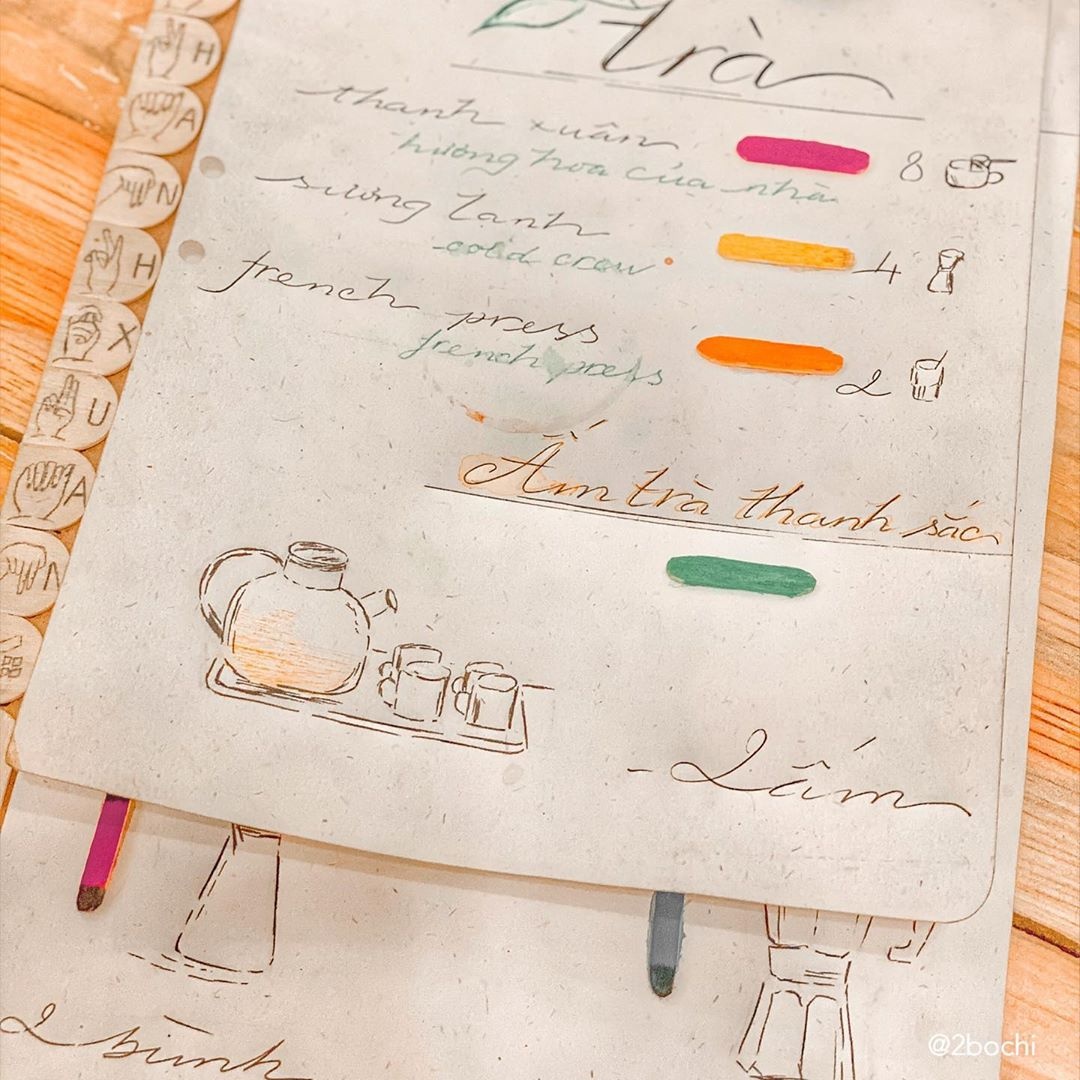 trà
thanh xuân
8
hương hoa của nhà
sương lạnh
4
cold crew
french press
2
french press
Ấm trà thanh sắc
- 2 ấm
2 bình
H
A
N
H
X
U
A
N
@2bochi